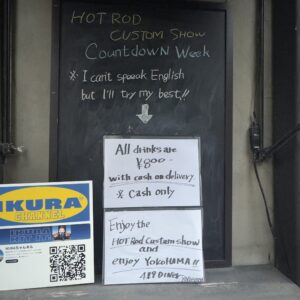 HOT ROD
CUSTOM SHOW
Countdown Week
※ I can't speak English
but I'll try my best!!
All drinks are
¥800-
with cash on delivery
※ Cash only
Enjoy the
HOT Rod Custom show
and
enjoy YOKOHAMA!!
IKURA
CHANNEL